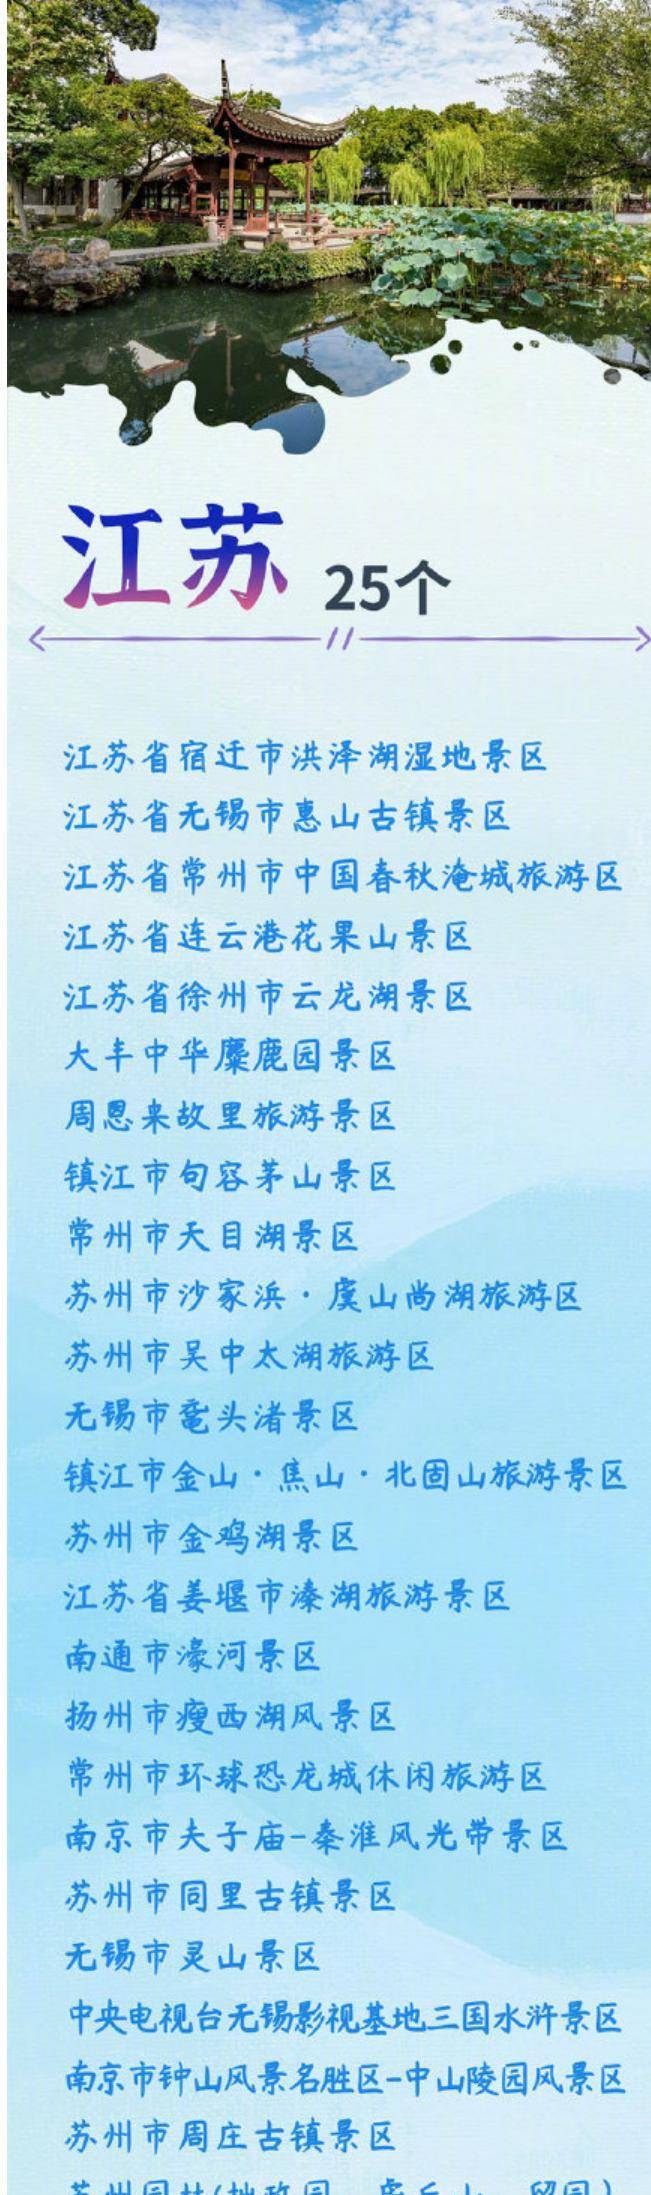 江苏 25个
江苏省宿迁市洪泽湖湿地景区
江苏省无锡市惠山古镇景区
江苏省常州市中国春秋淹城旅游区
江苏省连云港花果山景区
江苏省徐州市云龙湖景区
大丰中华麋鹿园景区
周恩来故里旅游景区
镇江市句容茅山景区
常州市天目湖景区
苏州市沙家浜·虞山尚湖旅游区
苏州市吴中太湖旅游区
无锡市鼋头渚景区
镇江市金山·焦山·北固山旅游景区
苏州市金鸡湖景区
江苏省姜堰市溱湖旅游景区
南通市濠河景区
扬州市瘦西湖风景区
常州市环球恐龙城休闲旅游区
南京市夫子庙-秦淮风光带景区
苏州市同里古镇景区
无锡市灵山景区
中央电视台无锡影视基地三国水浒景区
南京市钟山风景名胜区-中山陵园风景区
苏州市周庄古镇景区
苏州园林(拙政园、虎丘山、留园)